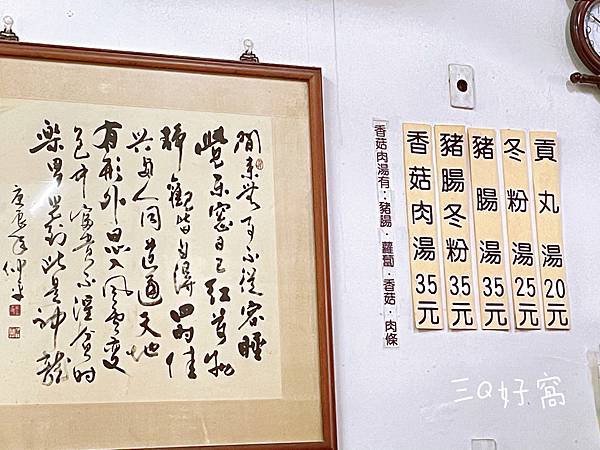 閒來無事不從容睡
覺東窗日已紅萬物
靜觀皆自得四時佳
興與人同道通天地
有形外思入風雲變
中富貴不淫貧
樂男兒到此是
庚辰年仲
香菇肉湯有:豬腸·蘿蔔·香菇·肉條
貢丸湯20元
冬粉湯25元
豬腸湯35元
豬腸冬粉35元
香菇肉湯35元
三Q好窩